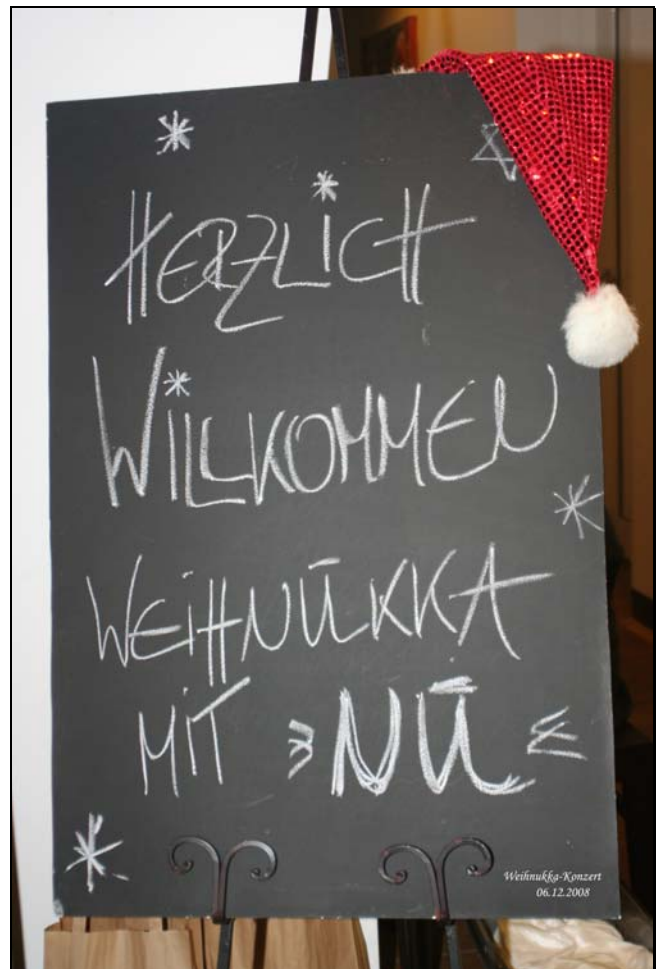 HERZLICH
WILLKOMMEN
WEIHNŪKKA
MIT »NŪ«
Weihnukka-Konzert
06.12.2008